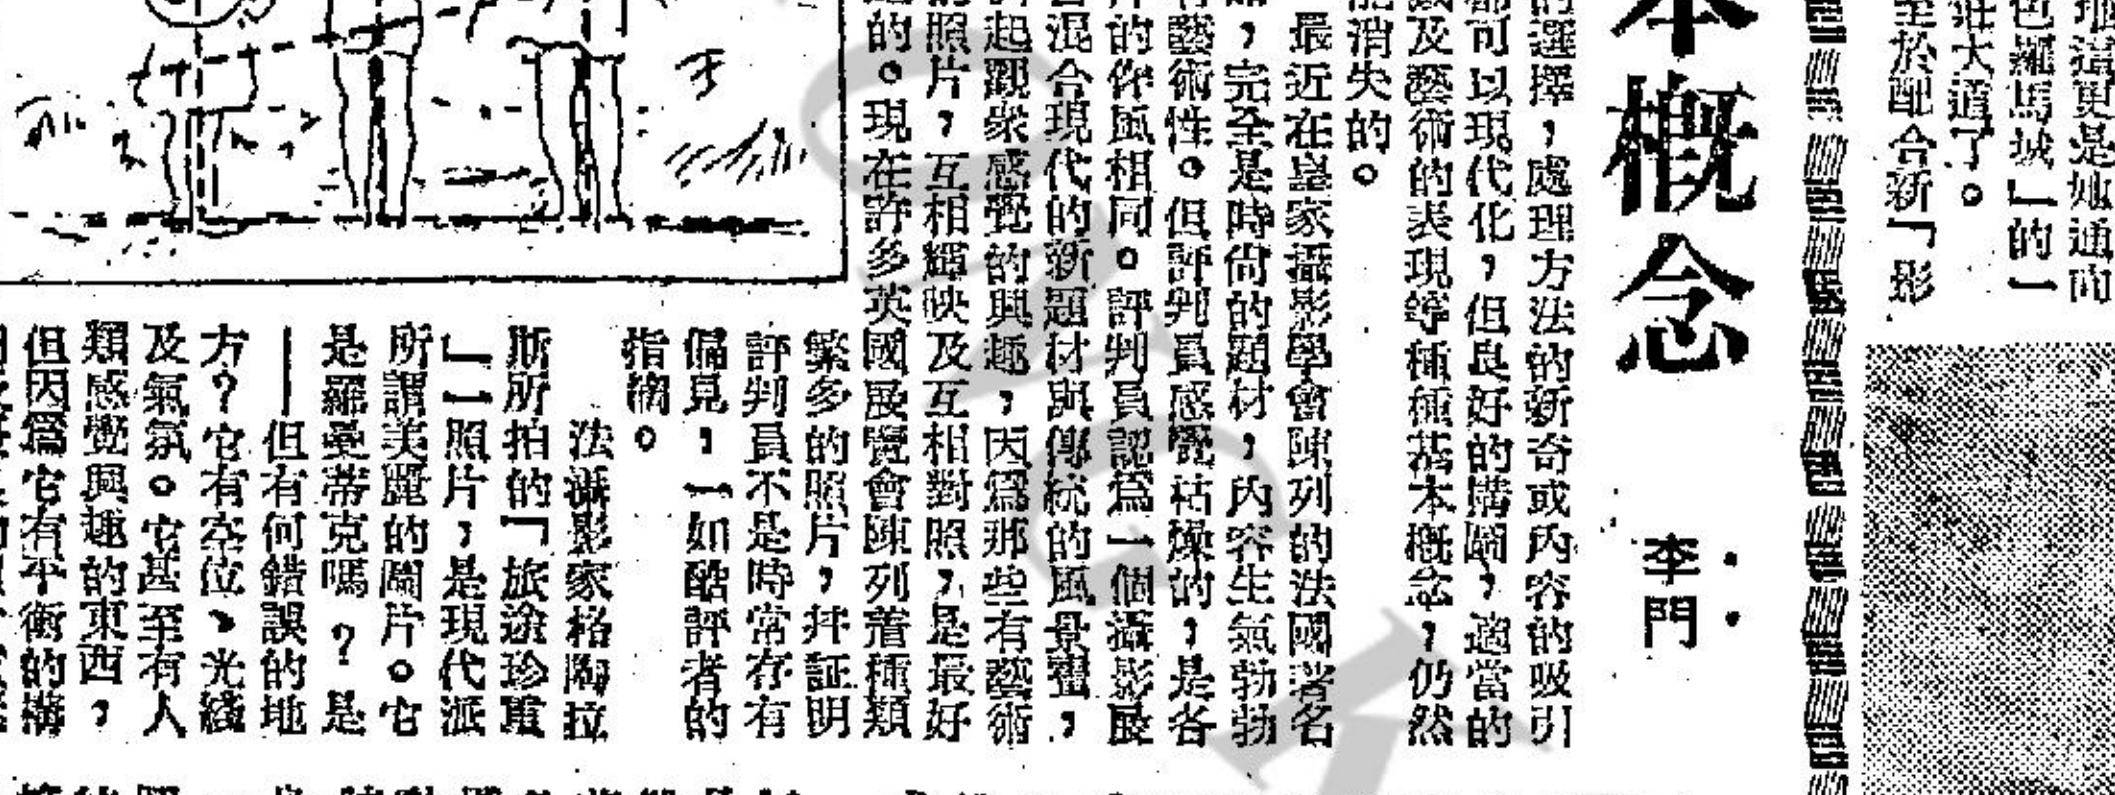 瑰道更是她通向
色羅馬城」的一
大道了。
至於配合新「影
本概念
李門
的選擇，處理方法的新奇或內容的吸引
都可以現代化，但良好的構圖，適當的
及藝術的表現等種種基本概念，仍然
能消失的。
最近在皇家攝影學會陳列的法國著名
，完全是時尚的題材，內容生氣勃勃
有藝術性。但評判員感覺枯燥的，是各
片的作風相同。評判員認爲一個攝影展
混合現代的新題材與傳統的風景畫，
引起觀衆感覺的興趣，因爲那些有藝術
的照片，互相輝映及互相對照，是最好
的。現在許多英國展覽會陳列着種類
繁多的照片，幷証明
評判員不是時常存有
偏見，一如酷評者的
指摘。
法攝影家格陶拉
斯所拍的「旅途珍重
」一照片，是現代派
所謂美麗的圖片。它
是羅曼蒂克嗎？是
——但有何錯誤的地
方？它有空位、光綫
及氣氛。它甚至有人
類感覺興趣的東西，
但因爲它有平衡的構
OMGK